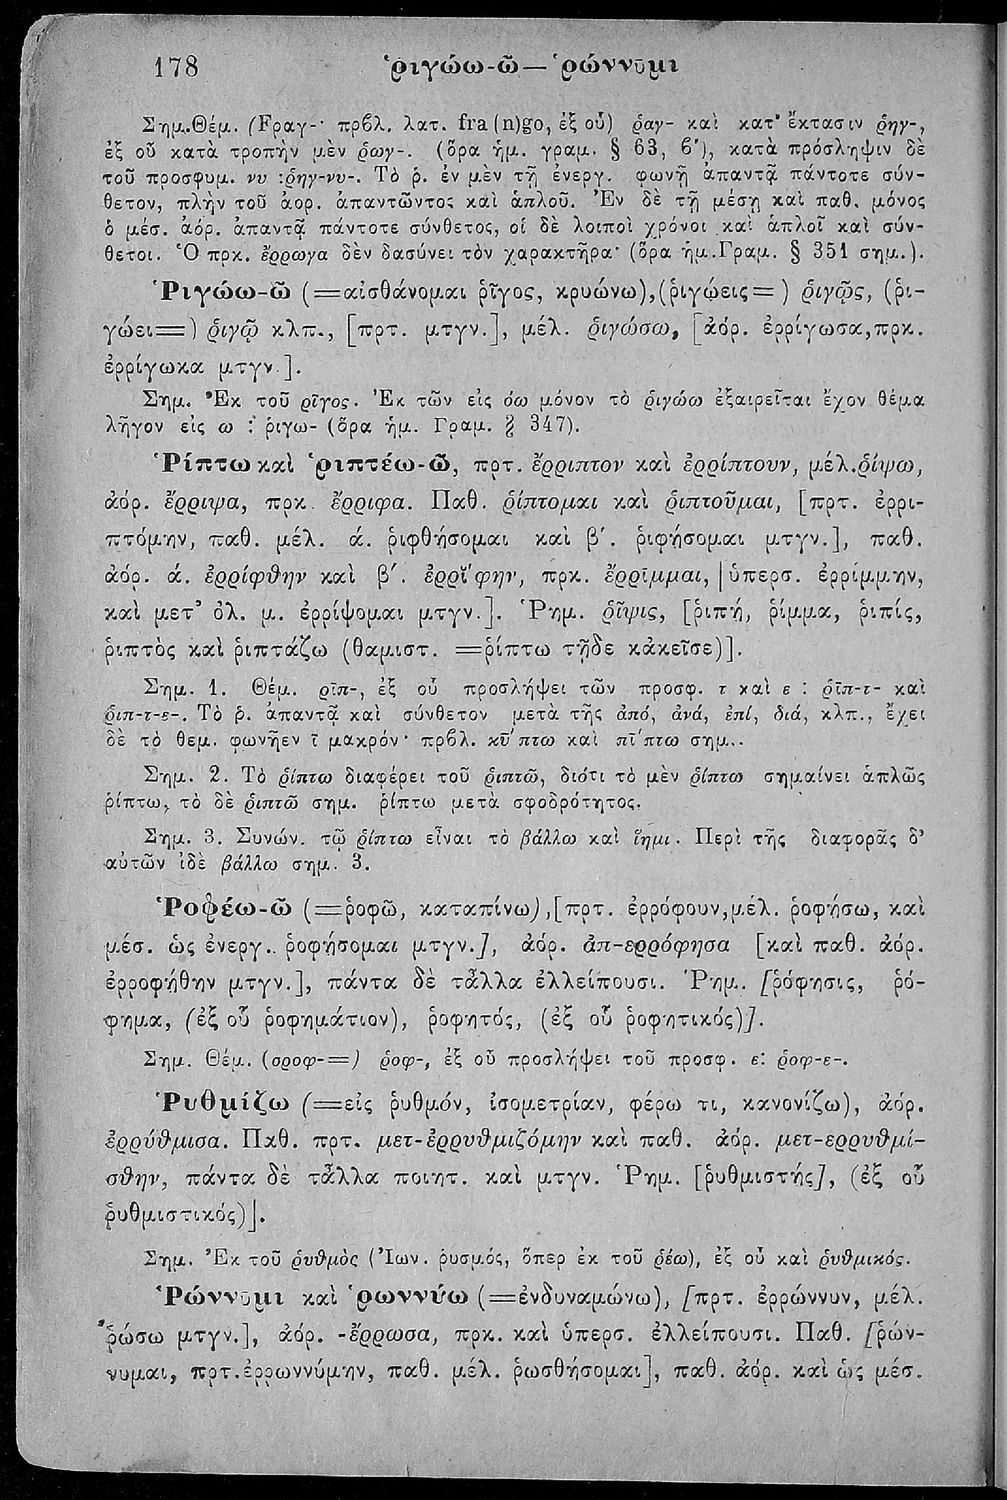 178 ῥιγώω-ῶ—ῥώννῡμι
Σημ.Θέμ. (Fραγ-· πρβλ. λατ. fra(n)go, ἐξ οὗ) ῥαγ- καὶ κατ' ἔκτασιν ῥηγ-,
ἐξ οὗ κατὰ τροπὴν μὲν ῥωγ-. (ὅρα ἡμ. γραμ. § 63, 6'), κατὰ πρόσληψιν δὲ
τοῦ προσφυμ. νυ :ῥηγ-νυ-. Τὸ ῥ. ἐν μὲν τῇ ἐνεργ. φωνῇ ἀπαντᾷ πάντοτε σύν-
θετον, πλὴν τοῦ ἀορ. ἀπαντῶντος καὶ ἁπλοῦ. Ἐν δὲ τῇ μέσῃ καὶ παθ. μόνος
ὁ μέσ. ἀόρ. ἀπαντᾷ πάντοτε σύνθετος, οἱ δὲ λοιποὶ χρόνοι καὶ ἁπλοῖ καὶ σύν-
θετοι. Ὁ πρκ. ἔρρωγα δὲν δασύνει τὸν χαρακτῆρα· (ὅρα ἡμ.Γραμ. § 351 σημ.).
Ῥιγώω-ῶ (=αἰσθάνομαι ῥῖγος, κρυώνω),(ῥιγώεις=) ῥιγῷς, (ῥι-
γώει=) ῥιγῷ κλπ., [πρτ. μτγν.], μέλ. ῥιγώσω, [ἀόρ. ἐρρίγωσα,πρκ.
ἐρρίγωκα μτγν.].
Σημ. Ἐκ τοῦ ρῖγος. Ἐκ τῶν εἰς όω μόνον τὸ ῥιγώω ἐξαιρεῖται ἔχον θέμα
λῆγον εἰς ω : ῥιγω- (ὅρα ἡμ. Γραμ. § 347).
Ῥίπτω καὶ ῥιπτέω-ῶ, πρτ. ἔρριπτον καὶ ἐρρίπτουν, μέλ.ῥίψω,
ἀόρ. ἔρριψα, πρκ. ἔρριφα. Παθ. ῥίπτομαι καὶ ῥιπτοῦμαι, [πρτ. ἐρρι-
πτόμην, παθ. μέλ. ά. ῥιφθήσομαι καὶ β'. ῥιφήσομαι μτγν.], παθ.
ἀόρ. ά. ἐρρίφθην καὶ β'. ἐρρῐ́φην, πρκ. ἔρρῑμμαι, [ὑπερσ. ἐρρίμμην,
καὶ μετ' ὀλ. μ. ἐρρίψομαι μτγν.]. Ῥημ. ῥῖψις, [ῥιπή, ῥίμμα, ῥιπίς,
ῥιπτὸς καὶ ῥιπτάζω (θαμιστ. =ῥίπτω τῇδε κἀκεῖσε)].
Σημ. 1. Θέμ. ρῑπ-, ἐξ οὗ προσλήψει τῶν προσφ. τ καὶ ε : ῥῑπ-τ- καὶ
ῥιπ-τ-ε-. Τὸ ῥ. ἀπαντᾷ καὶ σύνθετον μετὰ τῆς ἀπό, ἀνά, ἐπί, διά, κλπ., ἔχει
δὲ τὸ θεμ. φωνῆεν ῑ μακρόν· πρβλ. κῡ́πτω καὶ πῑ́πτω σημ..
Σημ. 2. Τὸ ῥίπτω διαφέρει τοῦ ῥιπτῶ, διότι τὸ μὲν ῥίπτω σημαίνει ἁπλῶς
ῥίπτω, τὸ δὲ ῥιπτῶ σημ. ῥίπτω μετὰ σφοδρότητος.
Σημ. 3. Συνών. τῷ ῥίπτω εἶναι τὸ βάλλω καὶ ἵημι. Περὶ τῆς διαφορᾶς δ'
αὐτῶν ἰδὲ βάλλω σημ. 3.
Ῥοφέω-ῶ (=ῥοφῶ, καταπίνω),[πρτ. ἐρρόφουν,μέλ. ῥοφήσω, καὶ
μέσ. ὡς ἐνεργ. ῥοφήσομαι μτγν.], ἀόρ. ἀπ-ερρόφησα [καὶ παθ. ἀόρ.
ἐρροφήθην μτγν.], πάντα δὲ τἆλλα ἐλλείπουσι. Ῥημ. [ῥόφησις, ῥό-
φημα, (ἐξ οὗ ῥοφημάτιον), ῥοφητός, (ἐξ οὗ ῥοφητικός)].
Σημ. Θέμ. (σροφ-=) ῥοφ-, ἐξ οὗ προσλήψει τοῦ προσφ. ε: ῥοφ-ε-.
Ῥυθμίζω (=εἰς ῥυθμόν, ἰσομετρίαν, φέρω τι, κανονίζω), ἀόρ.
ἐρρύθμισα. Παθ. πρτ. μετ-ἐρρυθμιζόμην καὶ παθ. ἀόρ. μετ-ερρυθμί-
σθην, πάντα δὲ τἆλλα ποιητ. καὶ μτγν. Ῥημ. [ῥυθμιστής], (ἐξ οὗ
ῥυθμιστικός)].
Σημ. Ἐκ τοῦ ῥυθμὸς (Ἰων. ῥυσμός, ὅπερ ἐκ τοῦ ῥέω), ἐξ οὗ καὶ ῥυθμικός.
Ῥώννῡμι καὶ ῥωννύω (=ἐνδυναμώνω), [πρτ. ἐρρώννυν, μέλ.
ῥώσω μτγν.], ἀόρ. -ἔρρωσα, πρκ. καὶ ὑπερσ. ἐλλείπουσι. Παθ. [ῥών-
νυμαι, πρτ.ἐρρωννύμην, παθ. μέλ. ῥωσθήσομαι], παθ. ἀόρ. καὶ ὡς μέσ.